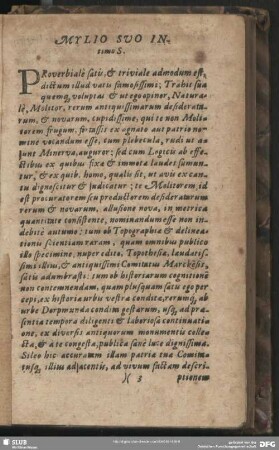 MYLIO SVO IN-
timo S.
PRoverbialè satis, & triviale admodum est,
dictum illud vatis famosissimi: Trahit sua
quemq, voluptas & ut ego opinor, Natura-
lè, Molitor, rerum antiquissimarum desiderata-
rum, & novarum, cupidissime, qui te non Moli-
torem frugum, fortassis ex agnato aut patrio no-
mine vocandum esse, cum plebecula, rudi ut a-
junt Minerva, auguror; sed cum Logicis ab esse-
ctibus ex quibus fixa & immota laudes faman-
tur, & ex quib. homo, qualis sit, ut avis ex can-
tu dignoscitur & judicatur; te Molitorem, id
est procuratorem seu productorem desideratarum
rerum & novarum, allusione nova, in metrica
quantitate consistente, nominandum esse non in-
debitè autumo: tum ob Topographiæ & delinea-
tionis scientiam raram, quam omnibus publico
illo specimine, nuper edito, Topothesia, laudatis-
simi illius, & antiquissimi Comitatus Marchensis,
satis adumbrasti: tum ob historiarum cognitionē
non contemnendam, quam plusquam satis ego per
cepi, ex historia urbu vestra condita, rerumq, ab
urbe Dorpmunda condita gestarum, usq, ad præ-
sentia tempora diligenti & laboriosa continuati-
one, ex diversis antiquorum monumentis colle-
cta, & a te congesta, publica sanè luce dignissima.
Sileo hic accuratam illam patriæ tuæ Comita-
tusq, illius adjacentis, ad vivum factam descri-
)( 3 ptionem
SLUB
DFG